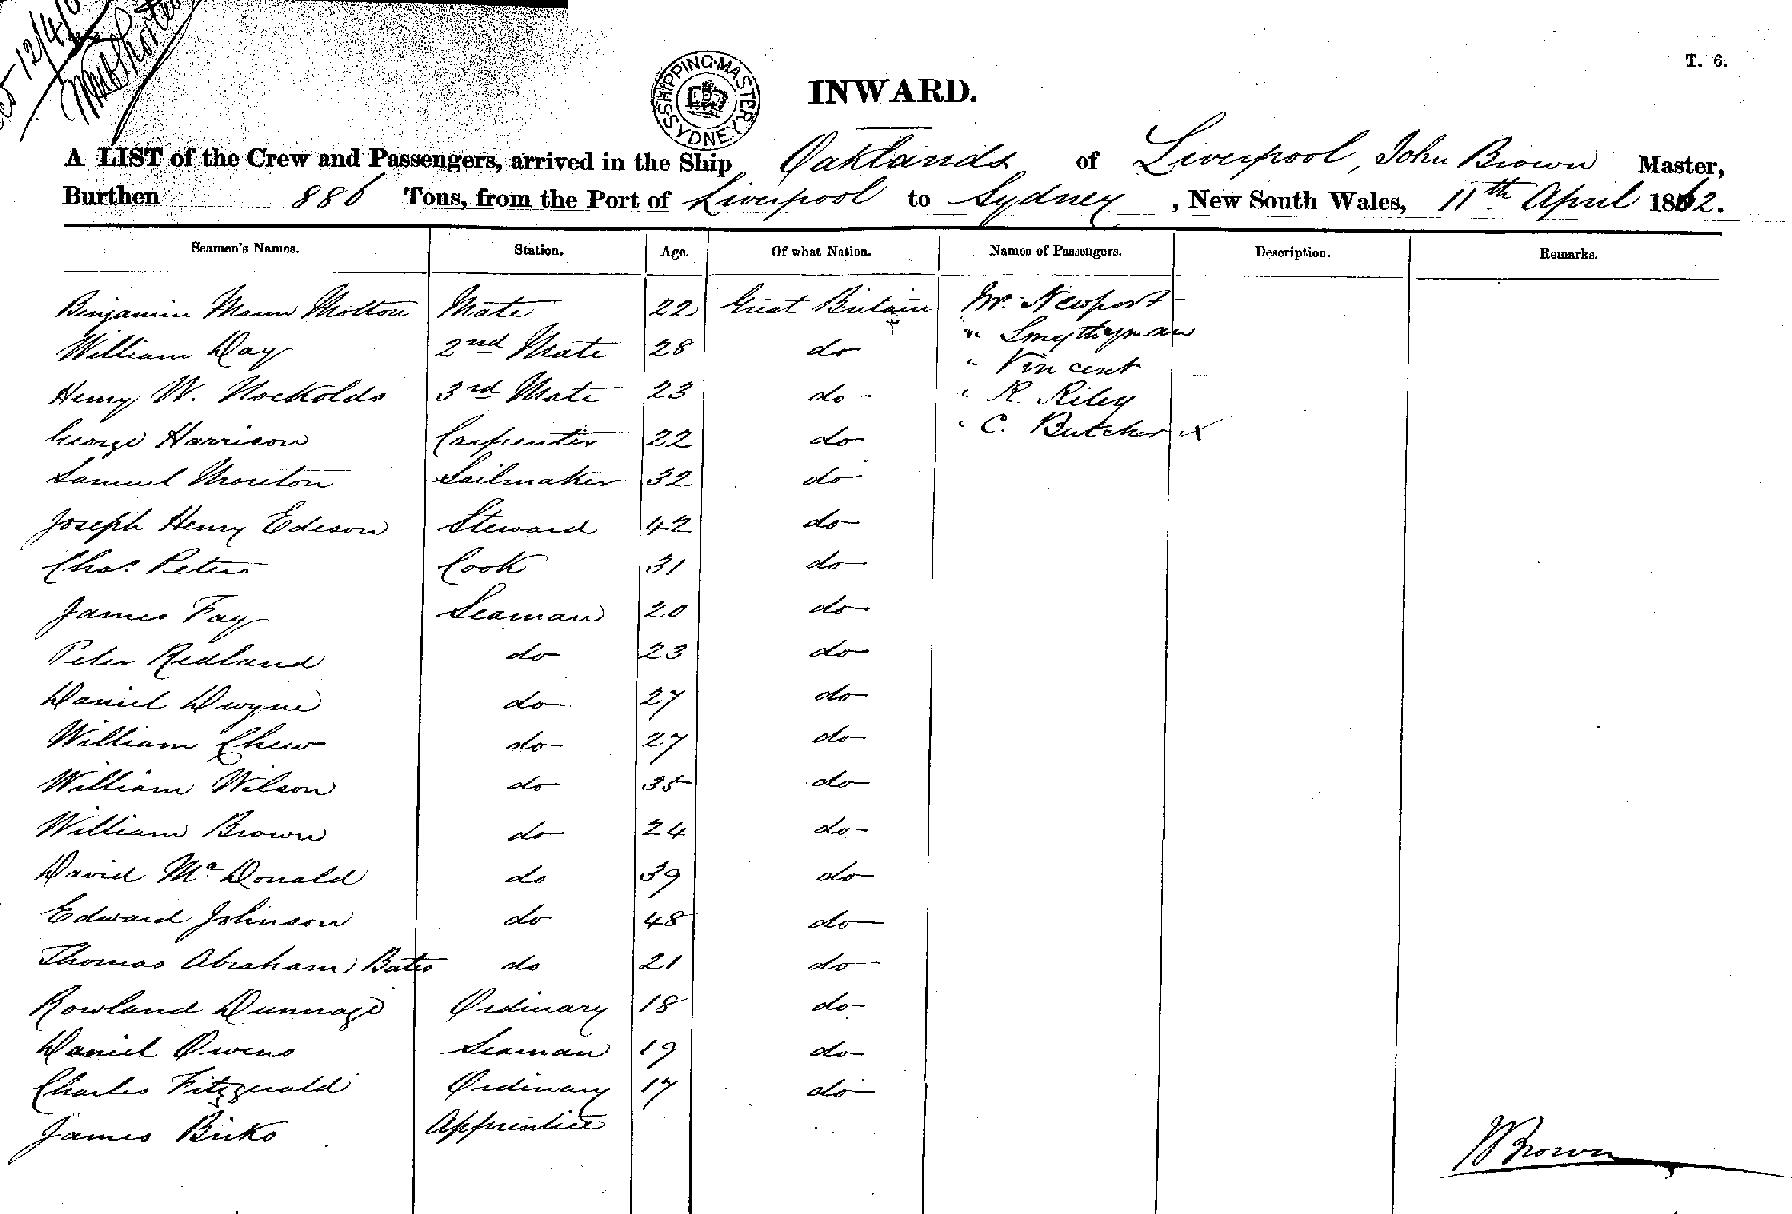 12/4/62
SHIPPING MASTER
SYDNEY
T. 6.
INWARD.
A LIST of the Crew and Passengers, arrived in the Ship Oaklands of Liverpool, John Brown Master,
Burthen 886 Tons, from the Port of Liverpool to Sydney, New South Wales, 11th April 1862.
Seamen's Names. Station. Age. Of what Nation. Names of Passengers. Description. Remarks.
Binjamin Mann Motton Mate 22 Great Britain Mr. Newport
William Day 2nd Mate 28 do " Smythyman
" Vincent
Henry W. Nockolds 3rd Mate 23 do " R. Riley
George Harrison Carpenter 22 do " C. Butcher x
Samuel Mouton Sailmaker 32 do
Joseph Henry Edeson Steward 42 do
Chas. Peters Cook 31 do
James Fay Seaman 20 do
Peter Redland do 23 do
Daniel Dwyne do 27 do
William Chew do 27 do
William Wilson do 35 do
William Brown do 24 do
David Mc Donald do 39 do
Edward Johnson do 48 do
Thomas Abraham Bates do 21 do
Rowland Dunnage Ordinary 18 do
Daniel Owens Seaman 19 do
Charles Fitzgerald Ordinary 17 do
James Birks Apprentice
J Brown